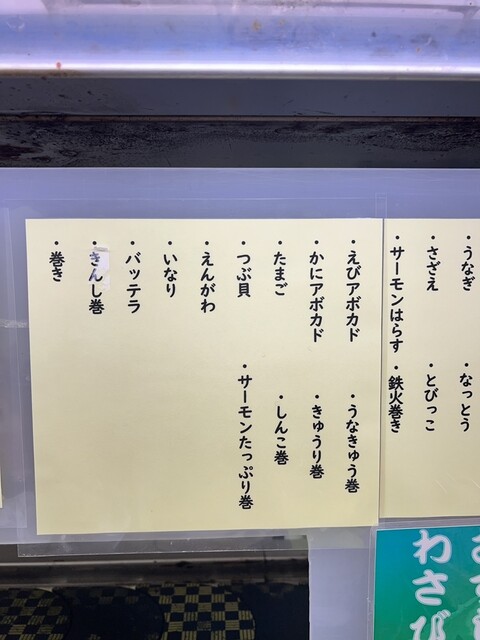 ・うなぎ
・なっとう
・さざえ
・とびっこ
・サーモンはらす
・鉄火巻き
・えびアボカド
・うなきゅう巻
・かにアボカド
・きゅうり巻
・たまご
・しんこ巻
・つぶ貝
・サーモンたっぷり巻
・えんがわ
・いなり
・バッテラ
・きんし巻
・巻き
わさび